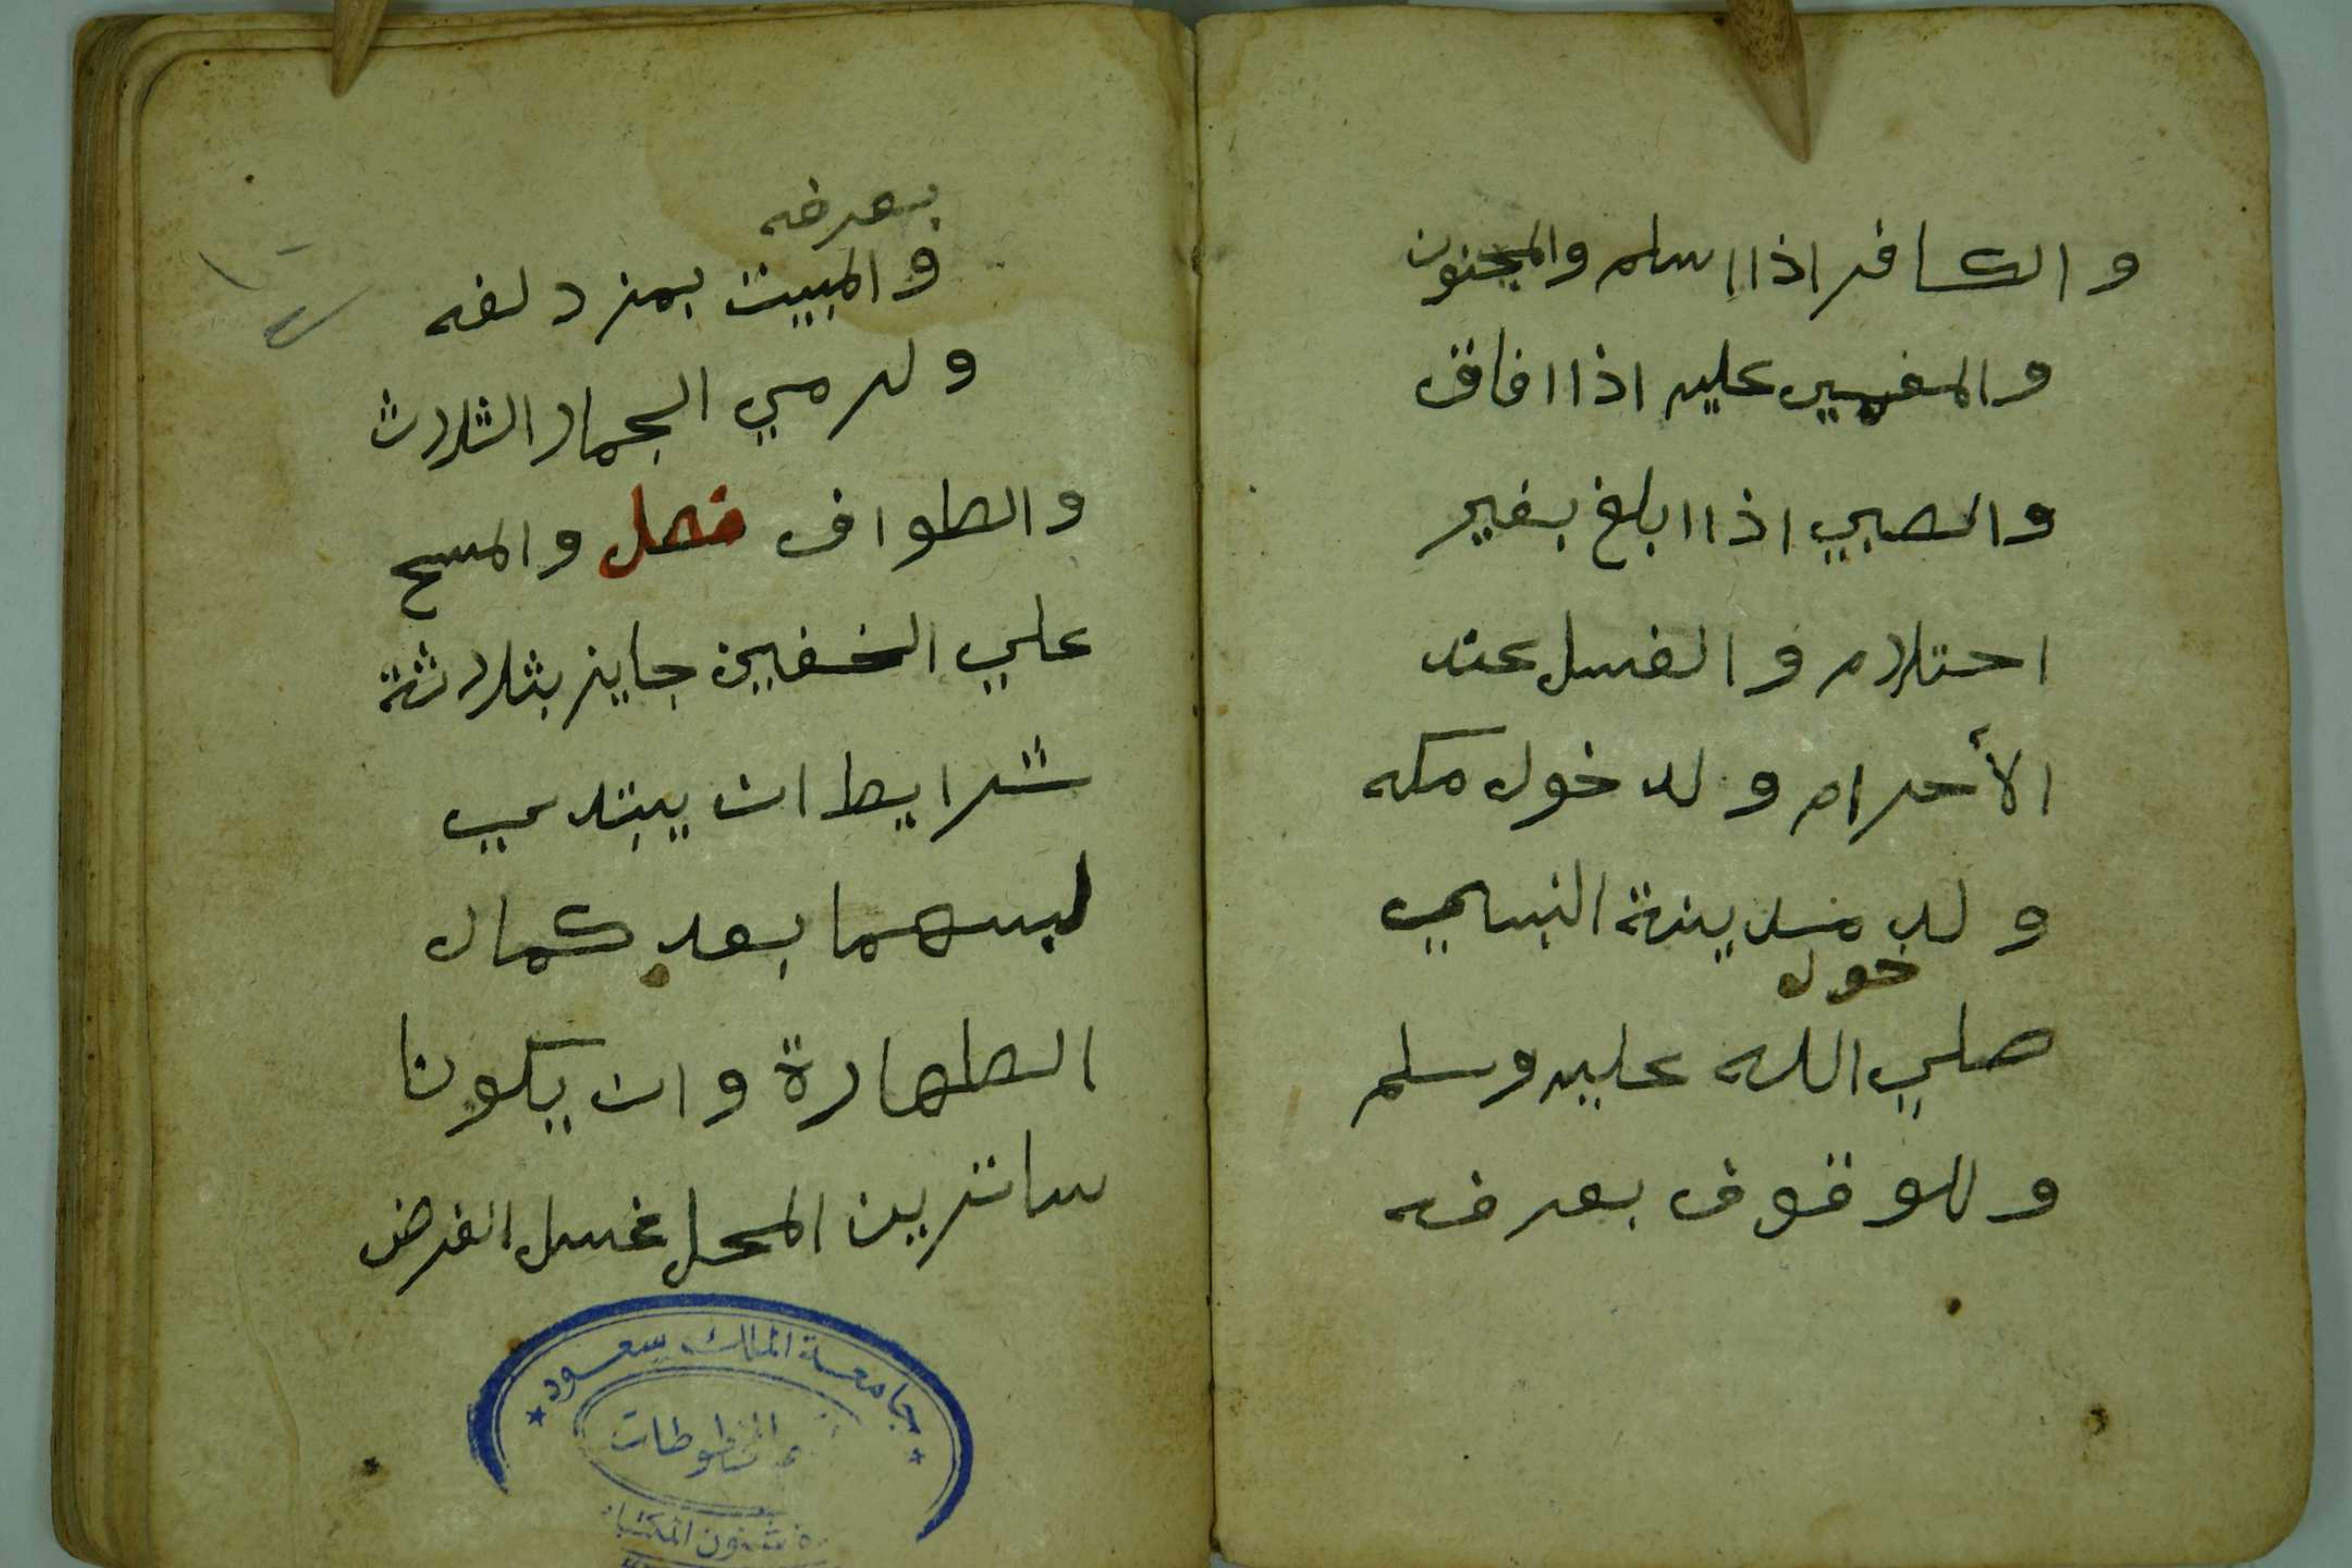 والكافر اذا اسلم والمجنون
والمغمي عليه اذا افاق
والصبي اذا ابلغ بغير
احتلام والغسل عند
الأحرام ولدخول مكه
ولد مدينة النبي
خول
صلي الله عليه وسلم
وللوقوف بعرفه
بعرفه
والمبيت بمزدلفه
ولرمي الجمار الثلاث
والطواف فصل والمسح
علي الخفين جايز بثلاثة
شرايط ان يبتدي
لبسهما بعد كمال
الطهارة وان يكونا
ساترين المحل غسل الفرض
جامعة الملك سعود
المخطوطات
شئون المكتبات